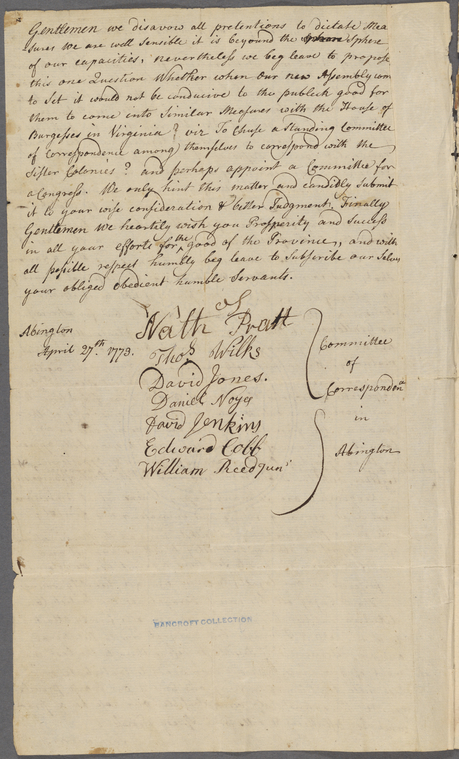 Gentlemen we disavow all pretentions to dictate Mea
sures we are well sensible it is beyound the Sphere
of our capacities, nevertheless we beg leave to propose
this one Question Whether when our new Assembly com
to Set it would not be conducive to the publick good for
them to come into Similar Measures with the House of
Burgesses in Virginia? viz To Chuse a Standing Committee
of Correspondence among themselves to correspond with the
Sister Colonies? and perhaps appoint a Committee for
a Congress. We only hint this matter and candidly Submit
it to your wise consideration & better Judgment, Finally
Gentlemen We heartily wish you Prosperity and Success
in all your efforts for the good of the Province,, and with
all posible respect humbly beg leave to Subscribe our Selves
your obliged obedient humble Servants.
Abington
April 27th. 1773.
Nath Pratt
Thos Wilks
David Jones.
Daniel Noyes
David Jenkins
Edward Cobb
William Reed Junr
Committee
of
Correspondence
in
Abington
BANCROFT COLLECTION